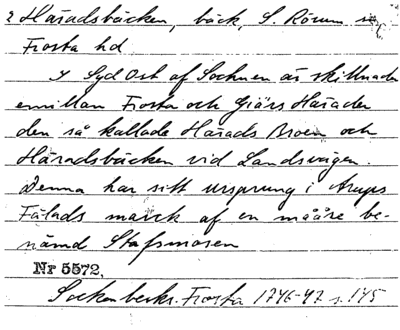 2 Häradsbäcken, bäck, S. Rörum sn,
Frosta hd
I Syd Ost af Socknen är skillnaden
emillan Frosta och Giärs Härader
den så kallade Härads Broen och
Häradsbäcken vid Landsvägen.
Denna har sitt ursprung i Arups
Fälads marck af en mååse be-
nämd Stafsmosen
Nr 5572,
Sockenbeskr. Frosta 1746-47 s. 145